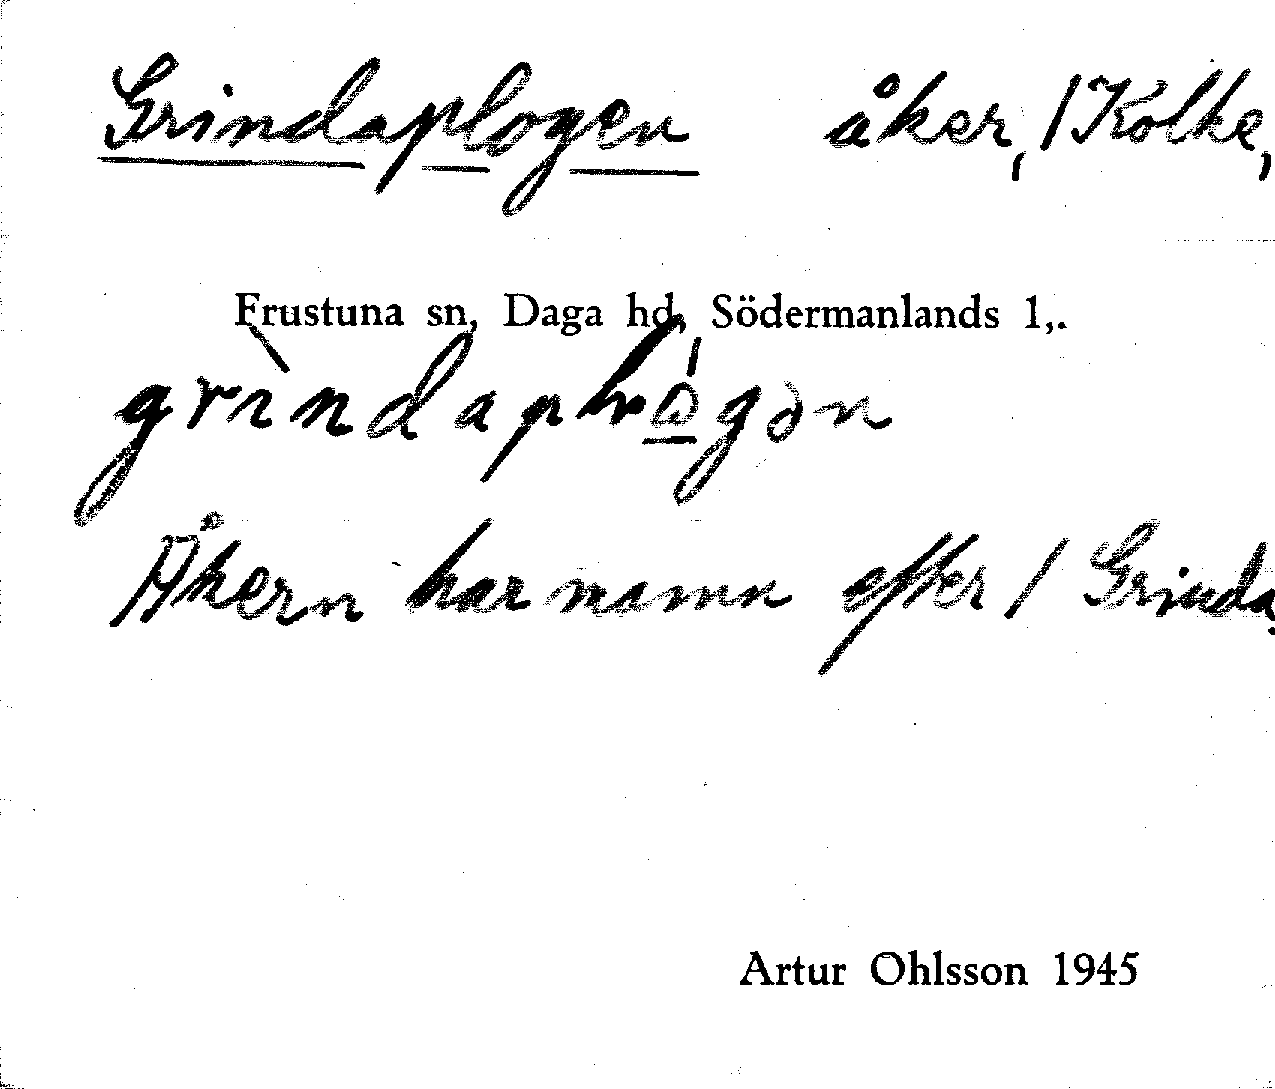 Grindaplogen åker, /Kolke,
Frustuna sn, Daga hd, Södermanlands l,.
grìndaplógən
Åkern har namn efter / Grinda.
Artur Ohlsson 1945